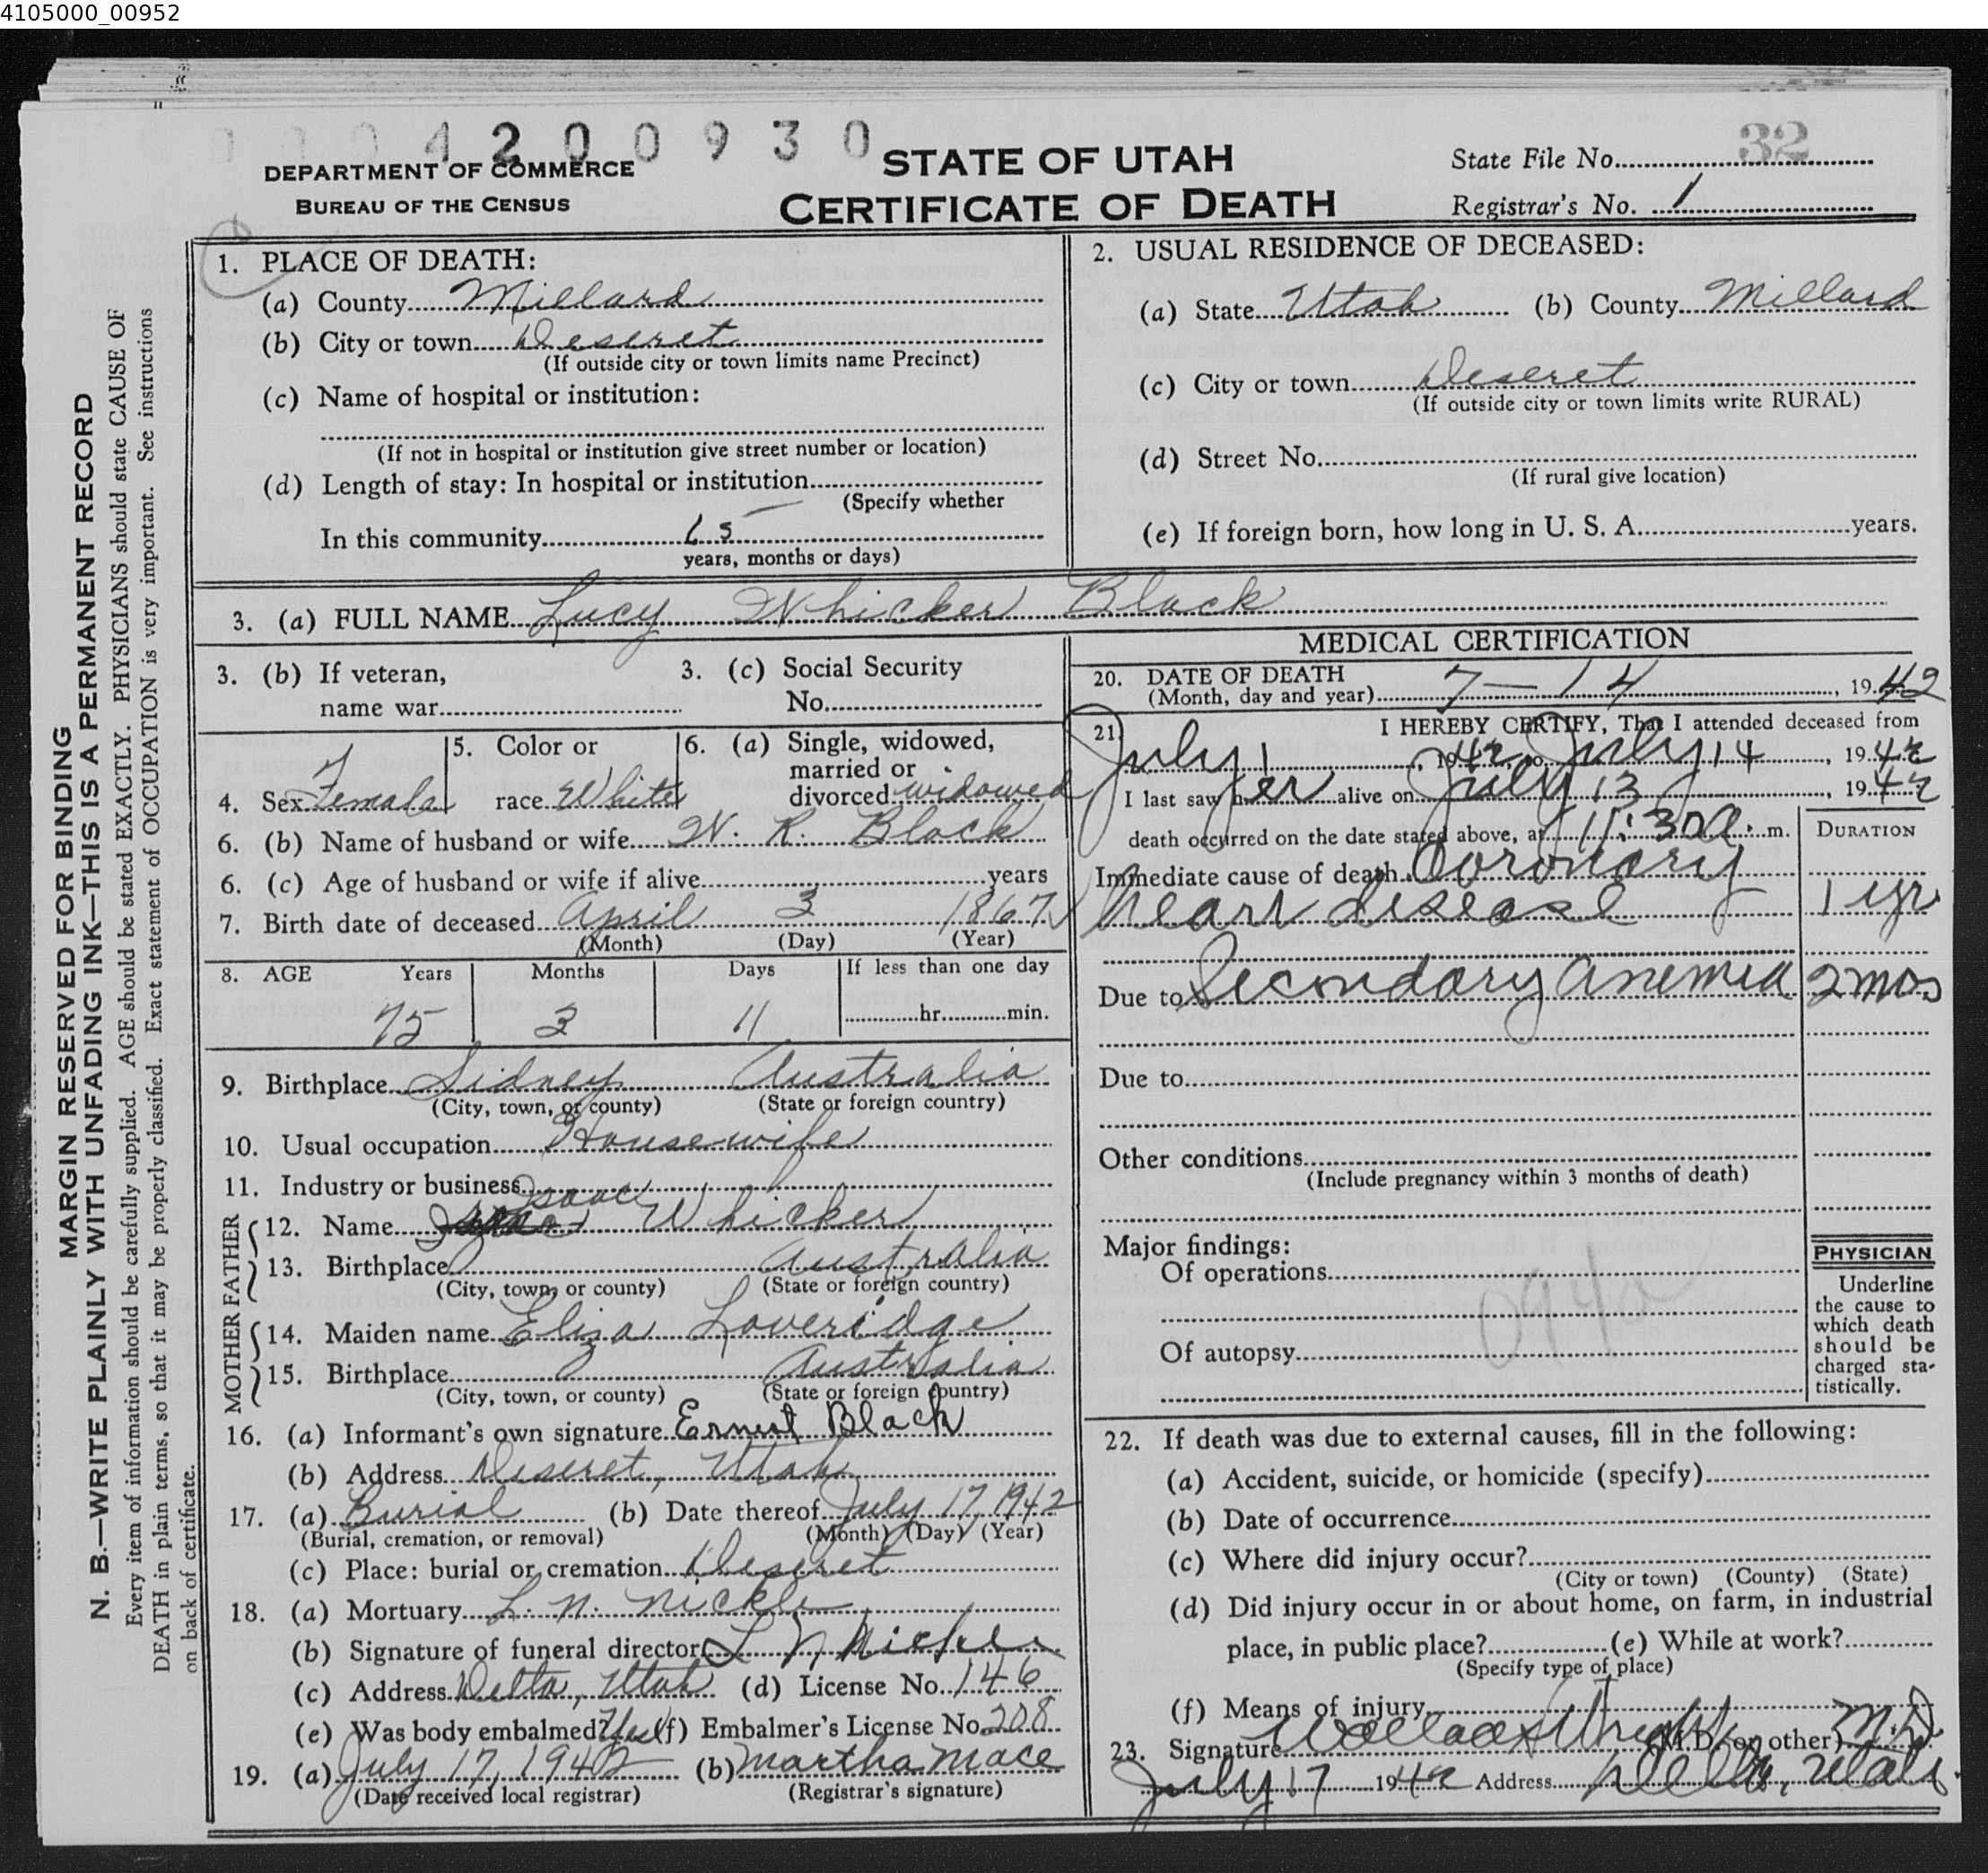 4105000_00952
0004200930
DEPARTMENT OF COMMERCE
BUREAU OF THE CENSUS
STATE OF UTAH
CERTIFICATE OF DEATH
State File No. 32
Registrar's No. 1
MARGIN RESERVED FOR BINDING
N. B.—WRITE PLAINLY WITH UNFADING INK—THIS IS A PERMANENT RECORD
Every item of information should be carefully supplied. AGE should be stated EXACTLY. PHYSICIANS should state CAUSE OF
DEATH in plain terms, so that it may be properly classified. Exact statement of OCCUPATION is very important. See instructions
on back of certificate.
1. PLACE OF DEATH:
(a) County Millard
(b) City or town Deseret
(If outside city or town limits name Precinct)
(c) Name of hospital or institution:
(If not in hospital or institution give street number or location)
(d) Length of stay: In hospital or institution
(Specify whether
In this community 65
years, months or days)
2. USUAL RESIDENCE OF DECEASED:
(a) State Utah (b) County Millard
(c) City or town Deseret
(If outside city or town limits write RURAL)
(d) Street No.
(If rural give location)
(e) If foreign born, how long in U. S. A. years.
3. (a) FULL NAME Lucy Whicker Black
3. (b) If veteran,
name war
3. (c) Social Security
No.
4. Sex Female
5. Color or
race White
6. (a) Single, widowed,
married or
divorced widowed
6. (b) Name of husband or wife W. R. Black
6. (c) Age of husband or wife if alive years
7. Birth date of deceased April 3 1867
(Month) (Day) (Year)
8. AGE Years Months Days If less than one day
75 3 11 hr. min.
9. Birthplace Sidney Australia
(City, town, or county) (State or foreign country)
10. Usual occupation Housewife
11. Industry or business
FATHER
Isaac
12. Name Whicker
13. Birthplace Australia
(City, town, or county) (State or foreign country)
MOTHER
14. Maiden name Eliza Loveridge
15. Birthplace Australia
(City, town, or county) (State or foreign country)
16. (a) Informant's own signature Ernest Black
(b) Address Deseret, Utah
17. (a) Burial (b) Date thereof July 17, 1942
(Burial, cremation, or removal) (Month) (Day) (Year)
(c) Place: burial or cremation Deseret
18. (a) Mortuary L. N. Nickle
(b) Signature of funeral director L N Nickle
(c) Address Delta, Utah (d) License No. 146
(e) Was body embalmed? Yes (f) Embalmer's License No. 208
19. (a) July 17, 1942 (b) Martha Mace
(Date received local registrar) (Registrar's signature)
MEDICAL CERTIFICATION
20. DATE OF DEATH
(Month, day and year) 7-14, 1942
21. I HEREBY CERTIFY, That I attended deceased from
July 1, 1942 to July 14, 1942
I last saw her alive on July 13, 1942
death occurred on the date stated above, at 11:30 a. m.
DURATION
Immediate cause of death Coronary
heart disease 1 yr
Due to Secondary anemia 2 mos
Due to
Other conditions
(Include pregnancy within 3 months of death)
Major findings:
Of operations
Of autopsy
PHYSICIAN
Underline
the cause to
which death
should be
charged sta-
tistically.
22. If death was due to external causes, fill in the following:
(a) Accident, suicide, or homicide (specify)
(b) Date of occurrence
(c) Where did injury occur?
(City or town) (County) (State)
(d) Did injury occur in or about home, on farm, in industrial
place, in public place? (e) While at work?
(Specify type of place)
(f) Means of injury
23. Signature Wright (M.D. or other) M.D.
July 17 1942 Address Delta, Utah.